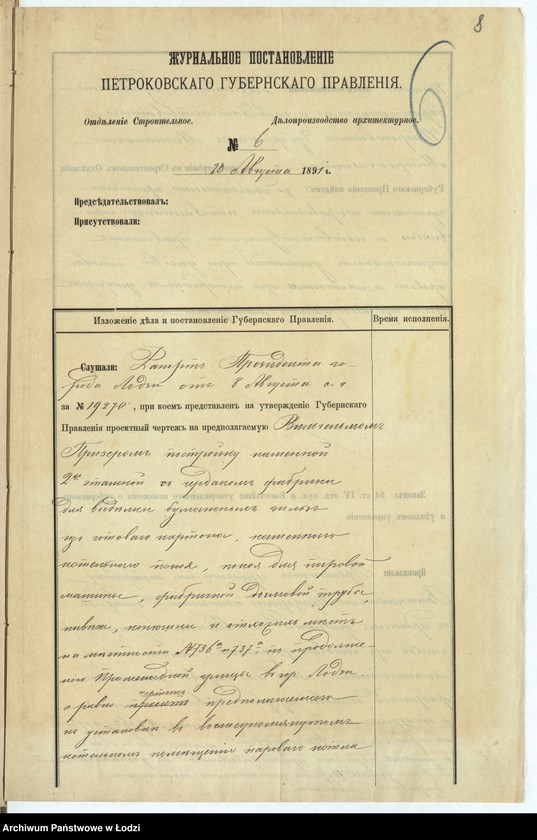 8
ЖУРНАЛЬНОЕ ПОСТАНОВЛЕНІЕ
ПЕТРОКОВСКАГО ГУБЕРНСКАГО ПРАВЛЕНІЯ.
Отдѣленіе Строительное. Дѣлопроизводство архитектурное.
№ 6
10 Августа 1891 г.
Предсѣдательствовалъ:
Присутствовали:
Изложеніе дѣла и постановленіе Губернскаго Правленія. Время исполненія.
Слушали: Рапортъ Президента го-
рода Лодзи отъ 8 Августа с. г.
за № 19270, при коемъ представленъ на утвержденіе Губернскаго
Правленія проектный чертежъ на предполагаемую Вильгельмомъ
постройку каменной
2хъ этажной съ чердакомъ фабрики
для выдѣлки бумажныхъ гильзъ
изъ готоваго картона, каменнаго
котельнаго покоя, покоя для паровой
машины, фабричной дымовой трубы,
навѣса, конюшни и отхожихъ мѣстъ
на мѣстности №736а и 737а по продолже-
нію Променадной улицы въ гор. Лодзи.
а равно чертежъ предполагаемаго
къ установкѣ въ вышеупомянутомъ
котельномъ помѣщеніи пароваго котла
Archiwum Państwowe w Łodzi